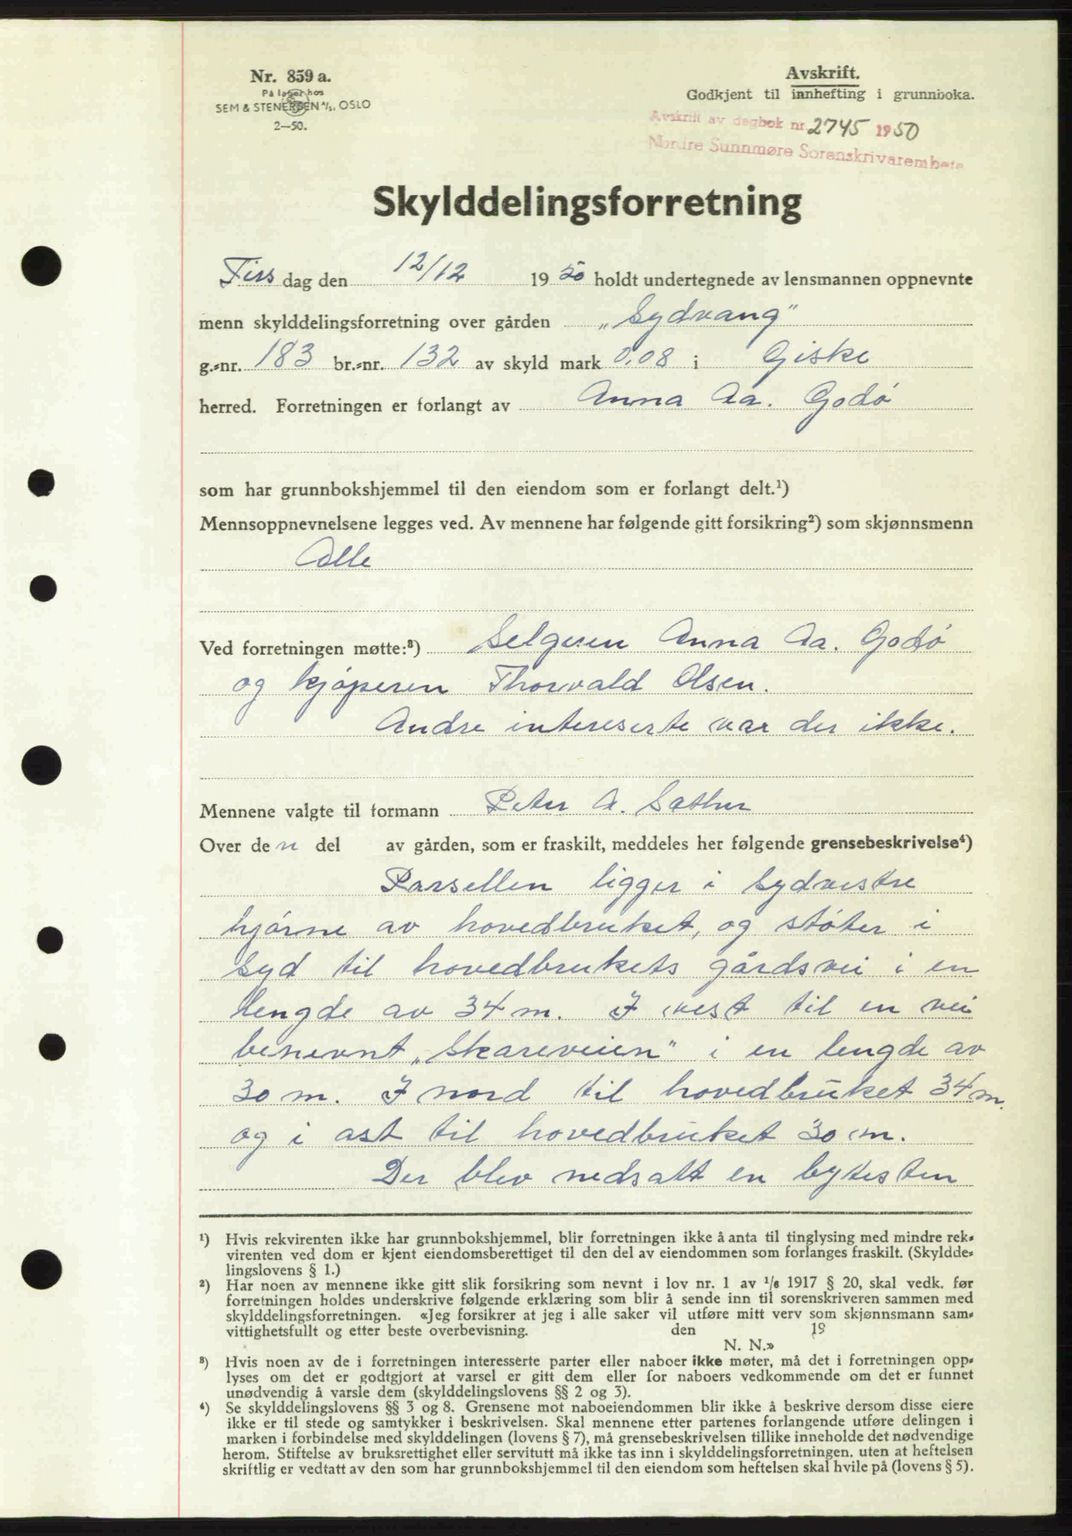 Nr. 859 a.
På lager hos
SEM & STENERSEN A/S, OSLO
2—50.
Avskrift.
Godkjent til innhefting i grunnboka.
Avskrift av dagbok nr 2745 1950
Nordre Sunnmøre Sorenskrivarembete
Skylddelingsforretning
Tirsdag den 12/12 1950 holdt undertegnede av lensmannen oppnevnte
menn skylddelingsforretning over gården „Sydvang”
g.-nr. 183 br.-nr. 132 av skyld mark 0,08 i Giske
herred. Forretningen er forlangt av Anna Aa. Godø
som har grunnbokshjemmel til den eiendom som er forlangt delt.¹)
Mennsoppnevnelsene legges ved. Av mennene har følgende gitt forsikring²) som skjønnsmenn
Alle
Ved forretningen møtte:³) Selgeren Anna Aa. Godø
og kjøperen Thorvald Olsen.
Andre intereserte var der ikke.
Mennene valgte til formann Peter A. Sæther
Over den del av gården, som er fraskilt, meddeles her følgende grensebeskrivelse⁴)
Parsellen ligger i Sydvestre
hjørne av hovedbruket, og støter i
Syd til hovedbrukets gårdsvei i en
lengde av 34 m. I vest til en vei
benevnt „Skareveien” i en lengde av
30 m. I nord til hovedbruket 34 m.
og i øst til hovedbruket 30 m.
Der blev nedsatt en bytesten
¹) Hvis rekvirenten ikke har grunnbokshjemmel, blir forretningen ikke å anta til tinglysing med mindre rek-
virenten ved dom er kjent eiendomsberettiget til den del av eiendommen som forlanges fraskilt. (Skyldde-
lingslovens § 1.)
²) Har noen av mennene ikke gitt slik forsikring som nevnt i lov nr. 1 av 1/6 1917 § 20, skal vedk. før
forretningen holdes underskrive følgende erklæring som blir å sende inn til sorenskriveren sammen med
skylddelingsforretningen. «Jeg forsikrer at jeg i alle saker vil utføre mitt verv som skjønnsmann sam-
vittighetsfullt og etter beste overbevisning. den 19
N. N.»
³) Hvis noen av de i forretningen interesserte parter eller naboer ikke møter, må det i forretningen opp-
lyses om det er godtgjort at varsel er gitt dem eller for naboers vedkommende om det er funnet
unødvendig å varsle dem (skylddelingslovens §§ 2 og 3).
⁴) Se skylddelingslovens §§ 3 og 8. Grensene mot naboeiendommen blir ikke å beskrive dersom disse eiere
ikke er til stede og samtykker i beskrivelsen. Skal mennene etter partenes forlangende utføre delingen i
marken i forbindelse med skylddelingen (lovens § 7), må grensebeskrivelsen tillike inneholde det nødvendige
herom. Stiftelse av bruksrettighet eller servitutt må ikke tas inn i skylddelingsforretningen, uten at heftelsen
skriftlig er vedtatt av den som har grunnbokshjemmel til den eiendom som heftelsen skal hvile på (lovens § 5).